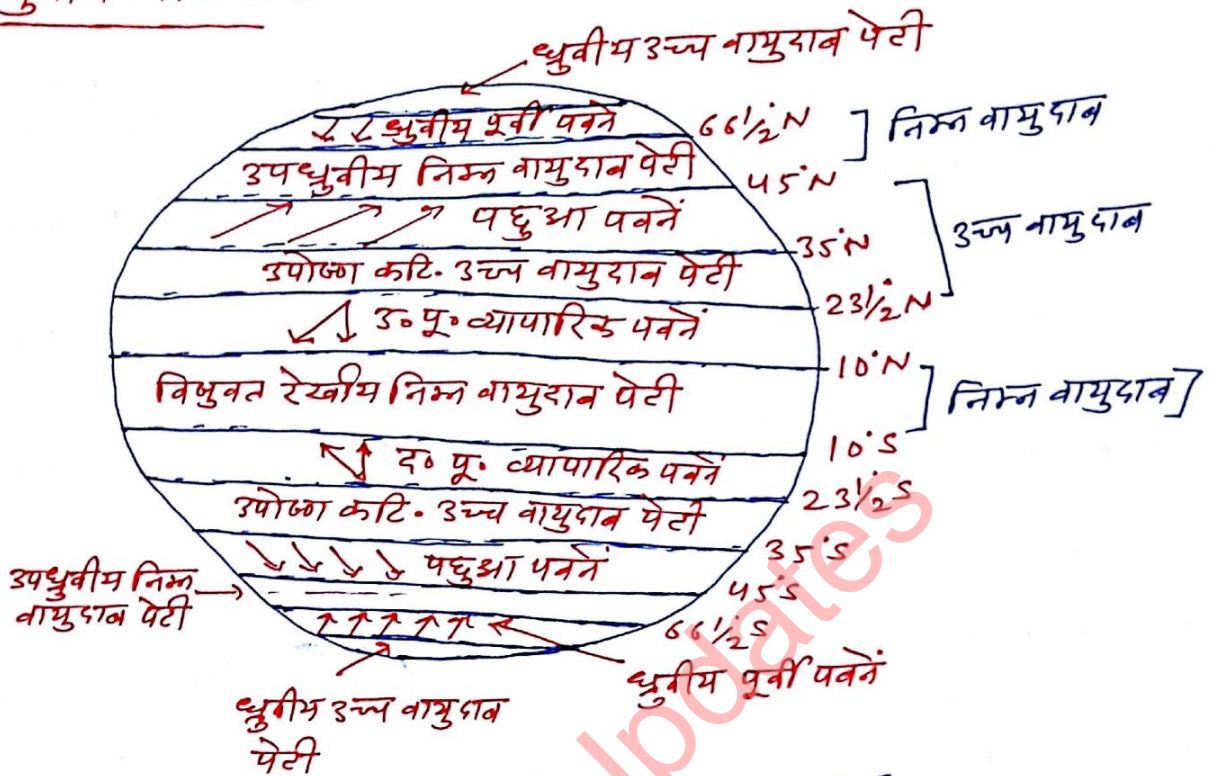 ध्रुवीय उच्च वायुदाब पेटी
ध्रुवीय पूर्वी पवनें
66 1/2°N
निम्न वायुदाब
उपध्रुवीय निम्न वायुदाब पेटी
45°N
पछुआ पवनें
35°N
उच्च वायुदाब
उपोष्ण कटि. उच्च वायुदाब पेटी
23 1/2°N
उ० पू० व्यापारिक पवनें
10°N
विषुवत रेखीय निम्न वायुदाब पेटी
निम्न वायुदाब
10°S
द० पू० व्यापारिक पवनें
23 1/2°S
उपोष्ण कटि. उच्च वायुदाब पेटी
35°S
पछुआ पवनें
उपध्रुवीय निम्न
वायुदाब पेटी
45°S
66 1/2°S
ध्रुवीय पूर्वी पवनें
ध्रुवीय उच्च वायुदाब
पेटी